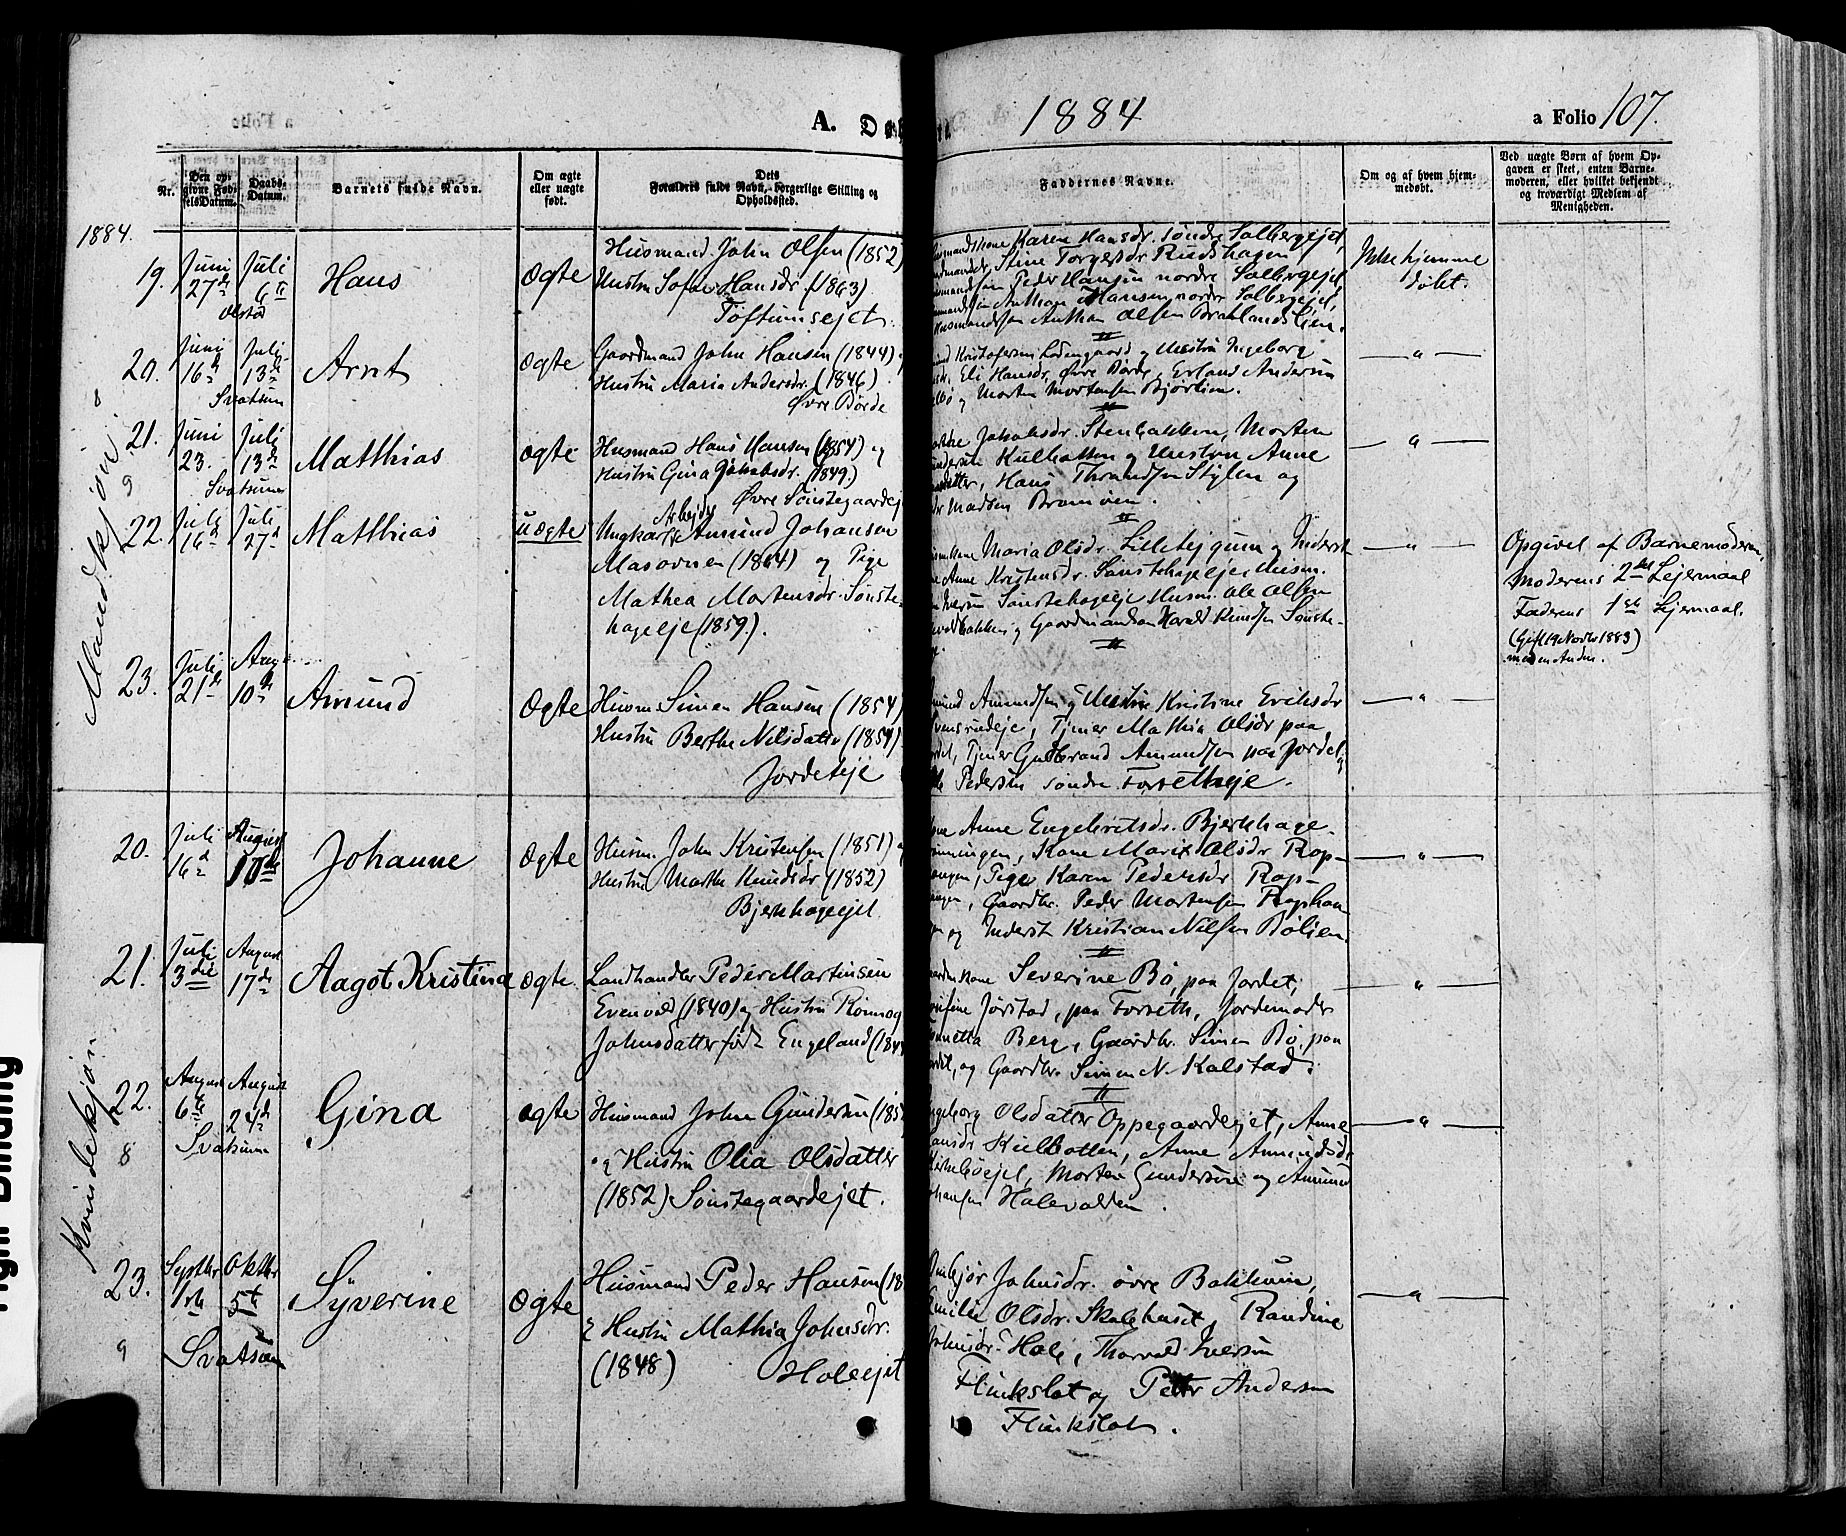 A. Døb
1884
a Folio 107.
Nr.
Den op-
givne Fød-
selsDatum.
Daabs-
Datum.
Barnets fulde Navn.
Om ægte
eller uægte
født.
Dets
Forældres fulde Navn, borgerlige Stilling og
Opholdssted.
Faddernes Navne.
Om og af hvem hjem-
medøbt.
Ved uægte Børn af hvem Op-
gaven er skeet, enten Barne-
moderen, eller hvilket bekjendt
og troværdigt Medlem af
Menigheden.
1884.
Mandkjøn
19.
Juni
27de
Juli
6te
Olstad
Hans
Ægte
Husmand John Olsen (1852)
Hustru Sofie Hansdr. (1863).
Toftumsejet.
Karen Hansdr. søndre Solbergejet,
Stine Torgersdr Rudshagen
Peder Hansen nordre Solbergejet
Anthon Hansen nordre Solbergejet,
Husmandssøn Anthon Olsen Bratlandslien.
Ikke hjemme
døbt.
20.
Juni
16de
Juli
13de
Svatsum
Arnt
Ægte
Gaardmand John Hansen (1844)
Hustru Maria Andersdr. (1846)
Øvre Børde
Kristofersen Lodengaard og Hustru Ingeborg
Eli Hansdr, Øvre Børde, Erland Andersen
og Morten Mortensen Bjørlien.
— " —
21.
Juni
23.
Juli
13de
Svatsum
Matthias
Ægte
Husmand Hans Hansen (1854) og
Hustru Gina Jakobsdr. (1849.)
Øvre Sønstegaardej
Jakobsdr. Stenbakken, Morten
Kulbotten og Hustru Anne
Hans Thrandsen Stylen og
Madsen Bramoen.
— " —
22.
Juli
16de
Juli
27de
Matthias
Uægte
Arbejds
Ungkarl Amund Johansen
Masovnen (1864) og Pige
Mathea Mortensdr. Sønste-
hageeje (1859).
Maria Olsdr. Lillehjgum og Inderst
Anne Kristensdr. Sønstehageeje Husm.
Iversen Sønstehageeje Husm. Ole Olsen
og Gaardmandssøn Harald Knudsen Sønste-
— " —
Opgivet af Barnemoderen,
Moderens 2det Lejermaal
Faderens 1ste Lejermaal.
(Gift 19 Novbr 1883)
med en Anden.
23.
Juli
21de
Aug.
10de
Amund
Ægte
Husm Simen Hansen (1854)
Hustru Berthe Nilsdatter (1854)
Jordeteje
Amundsen og Hustru Kristine Eriksdr
Svensrudeje, Tjener Mathia Olsdr paa
Jordet, Tjener Gulbrand Amundsen paa Jordet
Pedersen søndre Forsetheje.
— " —
Kvindekjøn
20.
Juli
16de
August
10de
Johanne
Ægte
Husm. John Kristensen (1851) og
Hustru Marthe Knudsdr (1852)
Bjerkhageejet
Anne Engebretsdr. Bjerkhage-
Kone Marit Olsdr Rop-
Pige Karen Pedersdr Rop-
Gaardbr. Peder Mortensen Rophau
og Inderst Kristian Nilsen Bølien.
— " —
21.
Juli
3die
August
17de
Aagot Kristina
Ægte.
Landhandler Peder Martinsen
Evenvold (1840) og Hustru Rønnog
Johnsdatter født Engeland (184
Severine Bø, paa Jordet,
Jørstad, paa Forseth, Jordemoder
Berg, Gaardbr. Simen Bø, paa
Jordet, og Gaardbr. Simen N. Kalstad.
— " —
22.
8
August
6te
August
24de
Svatsum
Gina
Ægte
Husmand John Gundersen (185
& Hustru Olia Olsdatter
(1852) Sønstegaardejet.
Ingeborg Olsdatter Oppegaardejet, Anne
Hansdr Kulbotten, Anne Amundsdr
Morten Gundersen og Amund
Johansen Halevolden.
— " —
23.
9
Septbr
1ste
Oktbr
5te
Svatsum
Syverine
Ægte
Husmand Peder Hansen (18
& Hustru Mathia Johnsdr.
(1848) Holeejet
Johnsdr. øvre Bakkum,
Emilie Olsdr. Skalshuset, Randine
Johnsdr. Hole, Thorvald Iversen
Flinkslåt og Peter Andersen
Flinkslåt.
— " —